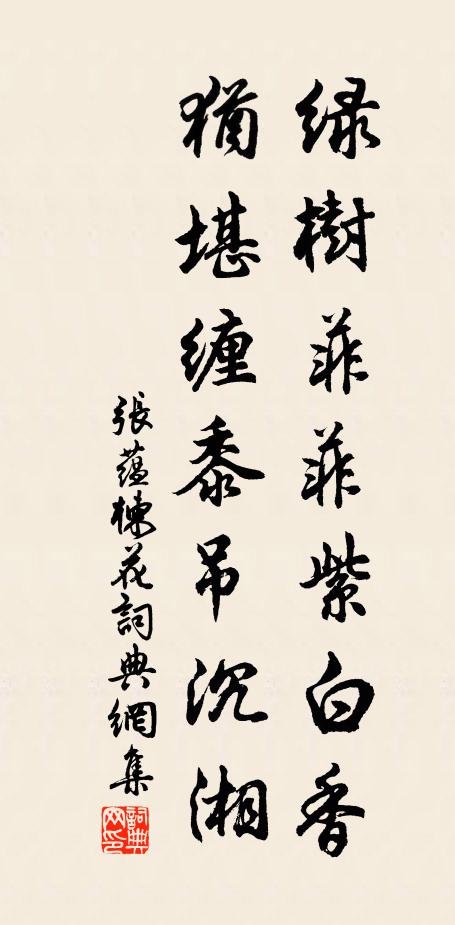 綠樹菲菲紫白香
猶堪纏黍吊沉湘
張蘊楝花詞典網集
詞典網印